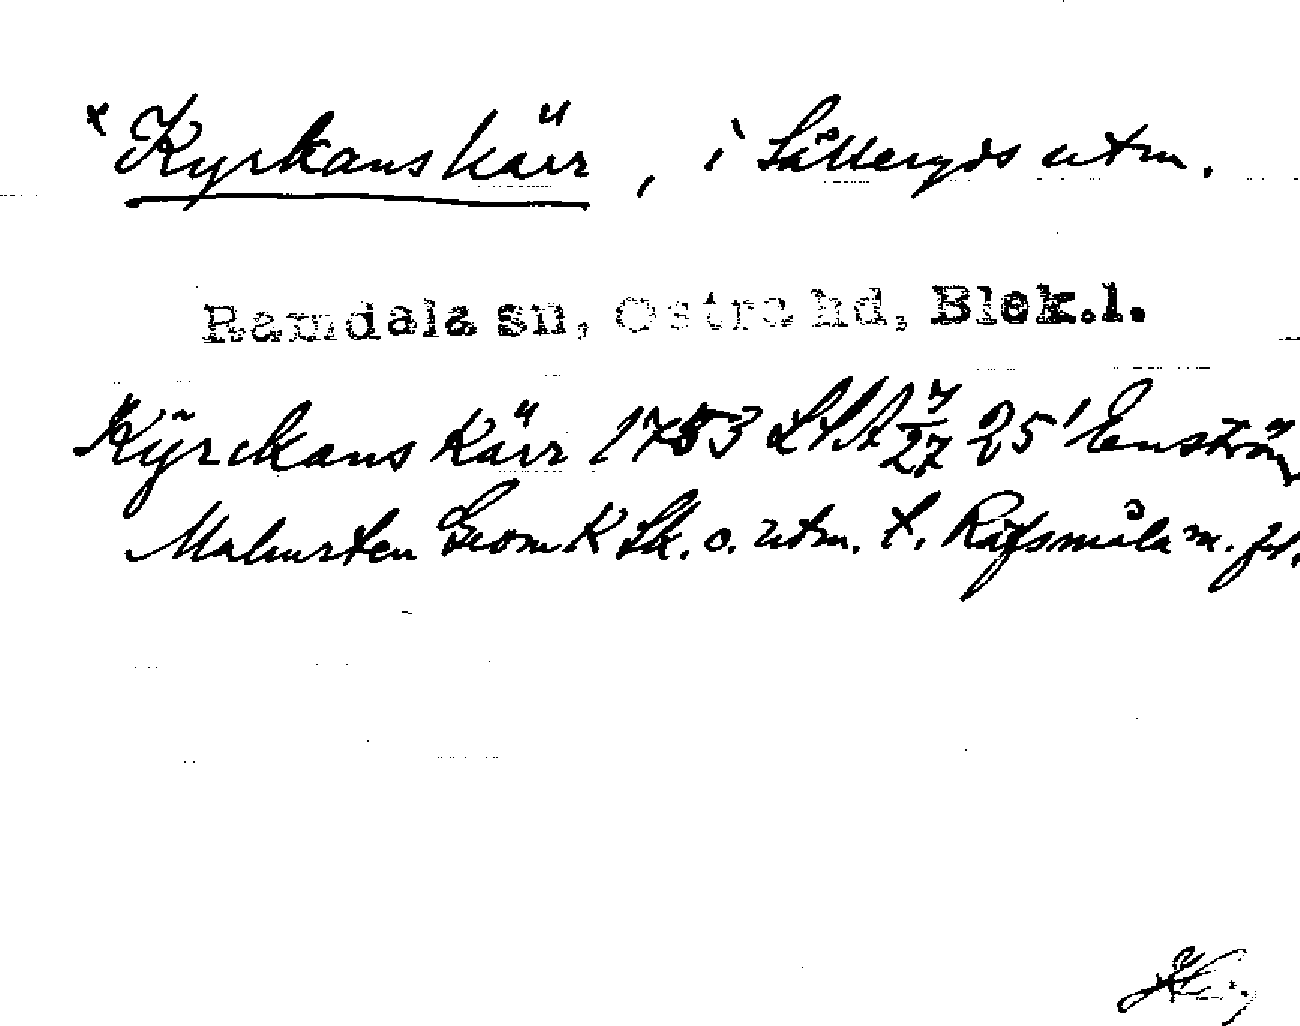 × Kyrkans kärr, i Såtteryds utm.
Ramdala sn, Östra hd, Blek.l.
Kÿrckans Kärr 1753 LSA 7/27 25' Enström
Malmsten Geom K Sk. o. utm. t. Räfsmåla m. fl.